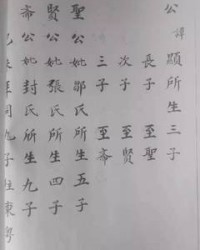 公諱顯所生三子
長子 至聖
次子 至賢
三子 至斋
聖公妣氏所生五子
賢公妣張氏所生四子
斋公妣封氏所生九子
年同九子往東粵